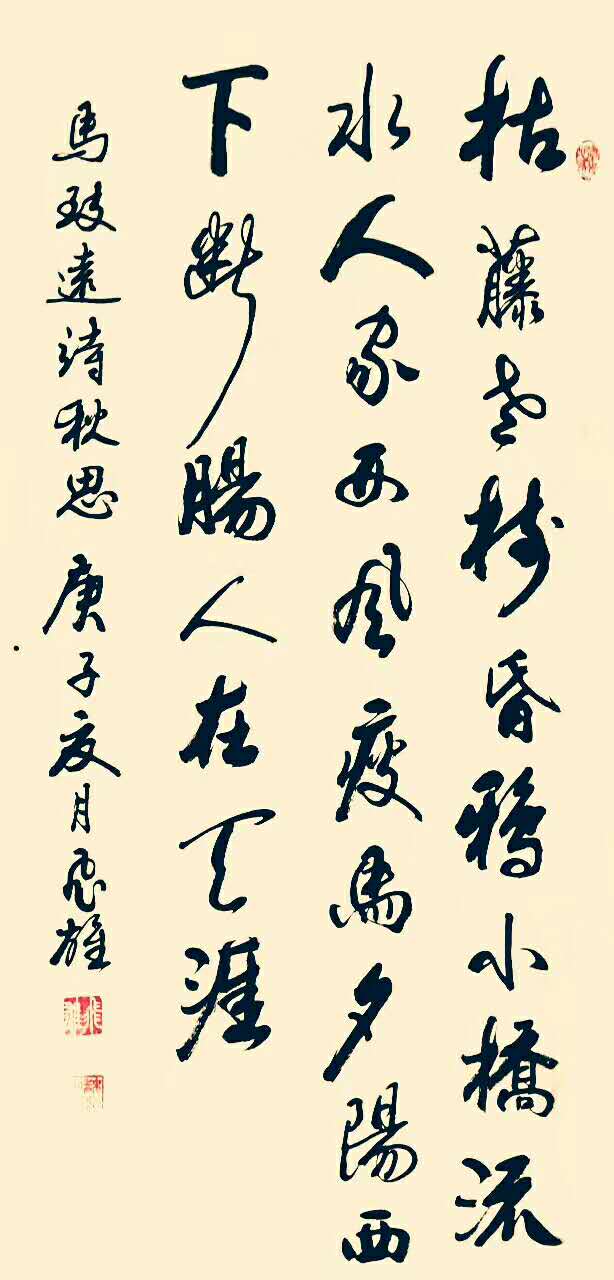 枯藤老樹昏鴉小橋流
水人家西風瘦馬夕陽西
下斷腸人在天涯
馬致遠詩秋思庚子夏月飛雄